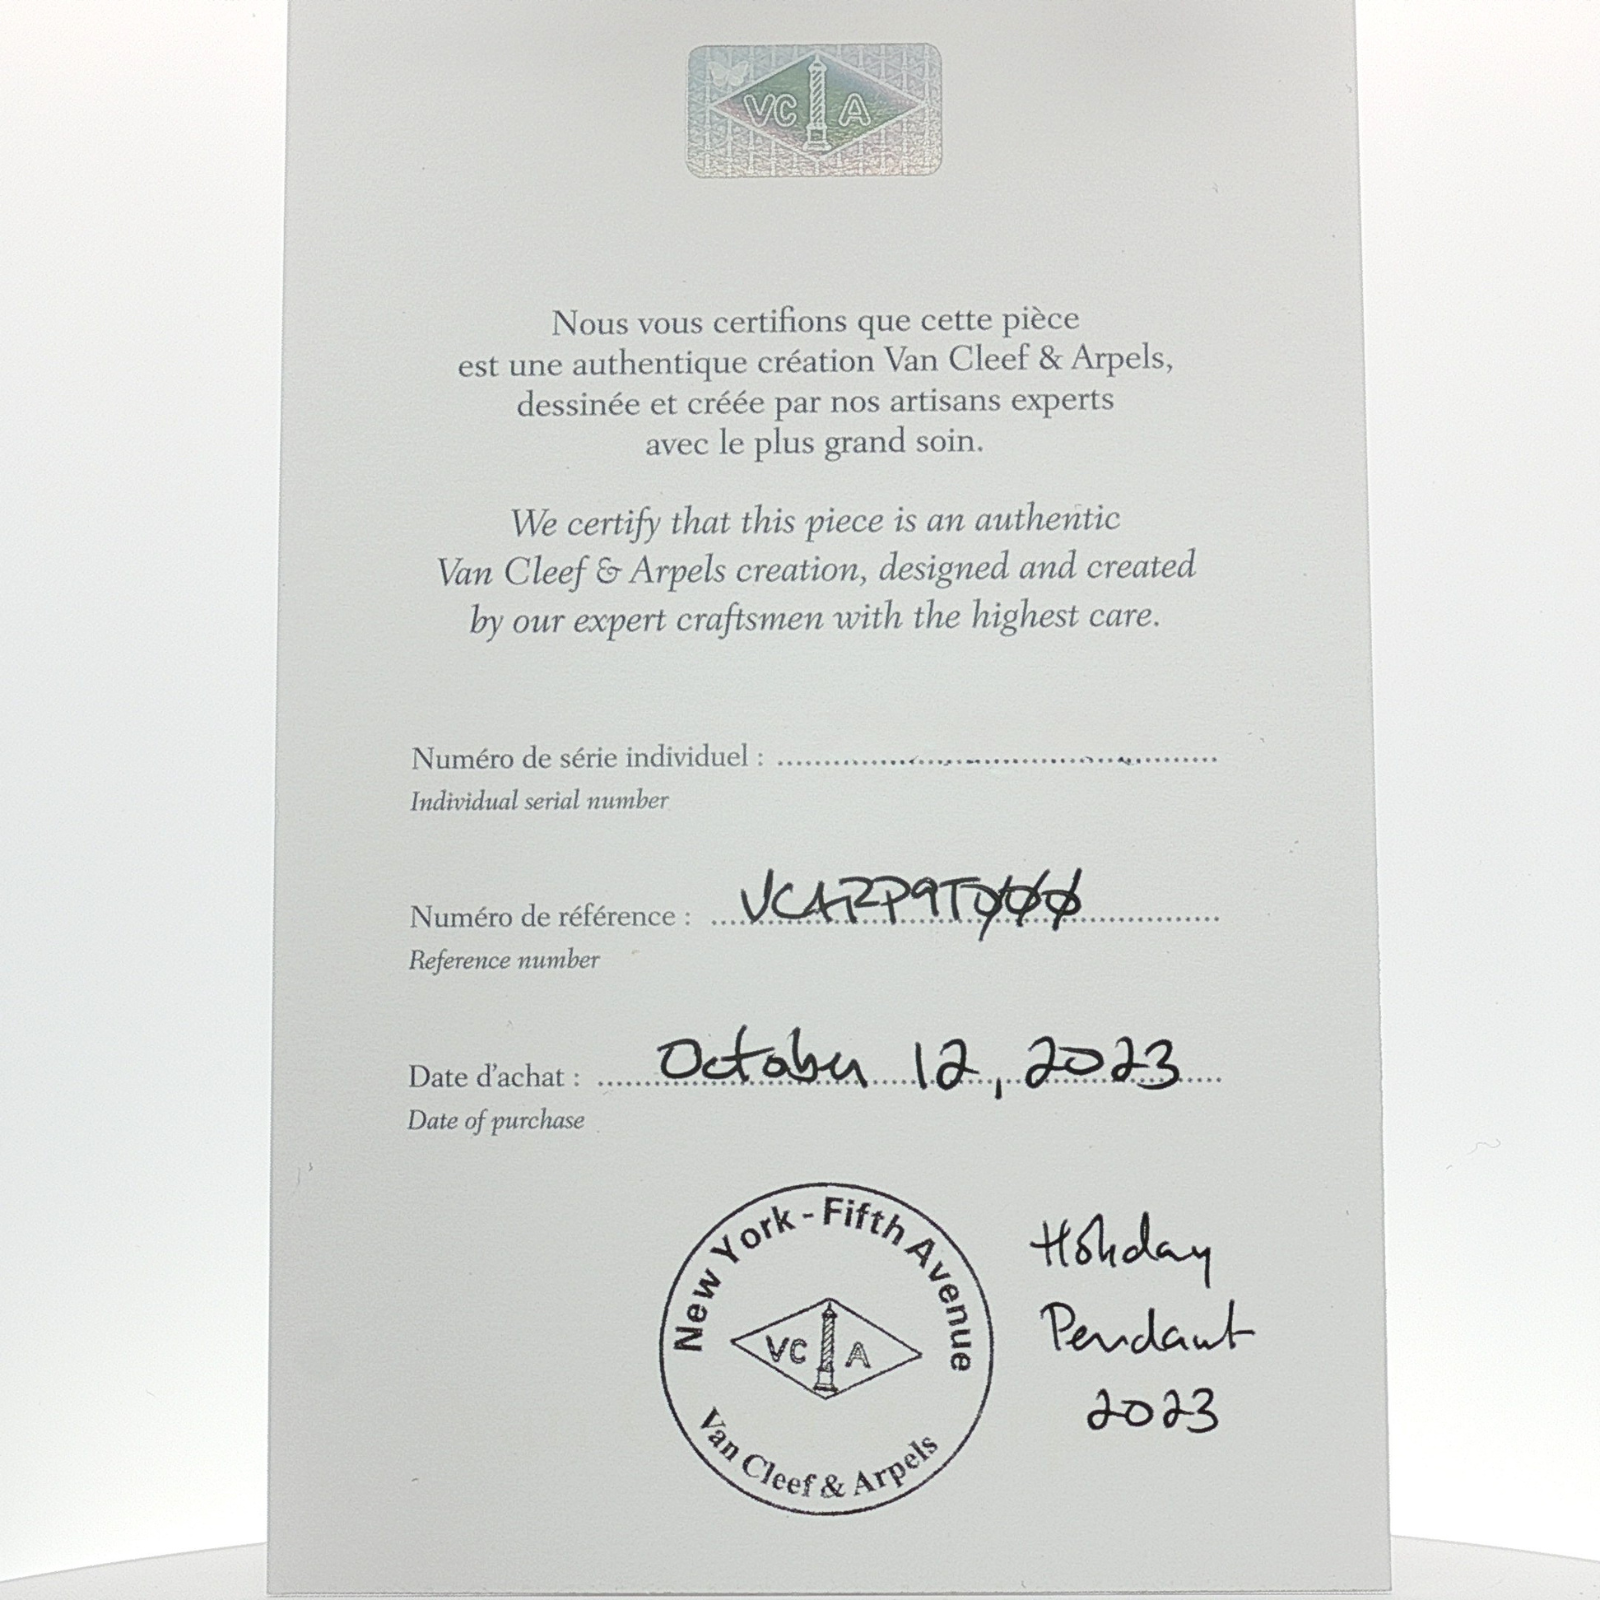 VC A
Nous vous certifions que cette pièce
est une authentique création Van Cleef & Arpels,
dessinée et créée par nos artisans experts
avec le plus grand soin.
We certify that this piece is an authentic
Van Cleef & Arpels creation, designed and created
by our expert craftsmen with the highest care.
Numéro de série individuel :
Individual serial number
Numéro de référence : VCARP9T000
Reference number
Date d'achat : October 12, 2023
Date of purchase
New York - Fifth Avenue
VC A
Van Cleef & Arpels
Holiday
Pendant
2023